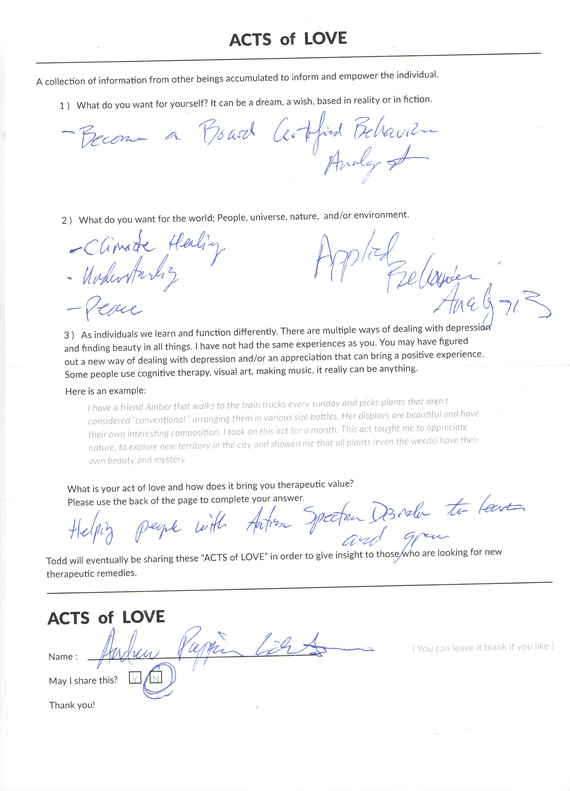 ACTS of LOVE
A collection of information from other beings accumulated to inform and empower the individual.
1 ) What do you want for yourself? It can be a dream, a wish, based in reality or in fiction.
- Become a Board Certified Behavior
Analyst
2 ) What do you want for the world; People, universe, nature, and/or environment.
- Climate Healing
- Understanding
- Peace
Applied
Behavior
Analysis
3 ) As individuals we learn and function differently. There are multiple ways of dealing with depression
and finding beauty in all things. I have not had the same experiences as you. You may have figured
out a new way of dealing with depression and/or an appreciation that can bring a positive experience.
Some people use cognitive therapy, visual art, making music, it really can be anything.
Here is an example:
I have a friend Amber that walks to the train tracks every sunday and picks plants that aren't
considered "conventional," arranging them in various size bottles. Her displays are beautiful and have
their own interesting composition. I took on this act for a month. This act taught me to appreciate
nature, to explore new territory in the city and showed me that all plants (even the weeds) have their
own beauty and mystery.
What is your act of love and how does it bring you therapeutic value?
Please use the back of the page to complete your answer.
Helping people with Autism Spectrum Disorder to learn
and grow
Todd will eventually be sharing these "ACTS of LOVE" in order to give insight to those who are looking for new
therapeutic remedies.
ACTS of LOVE
Name : Andrew
( You can leave it blank if you like )
May I share this? Y N
Thank you!